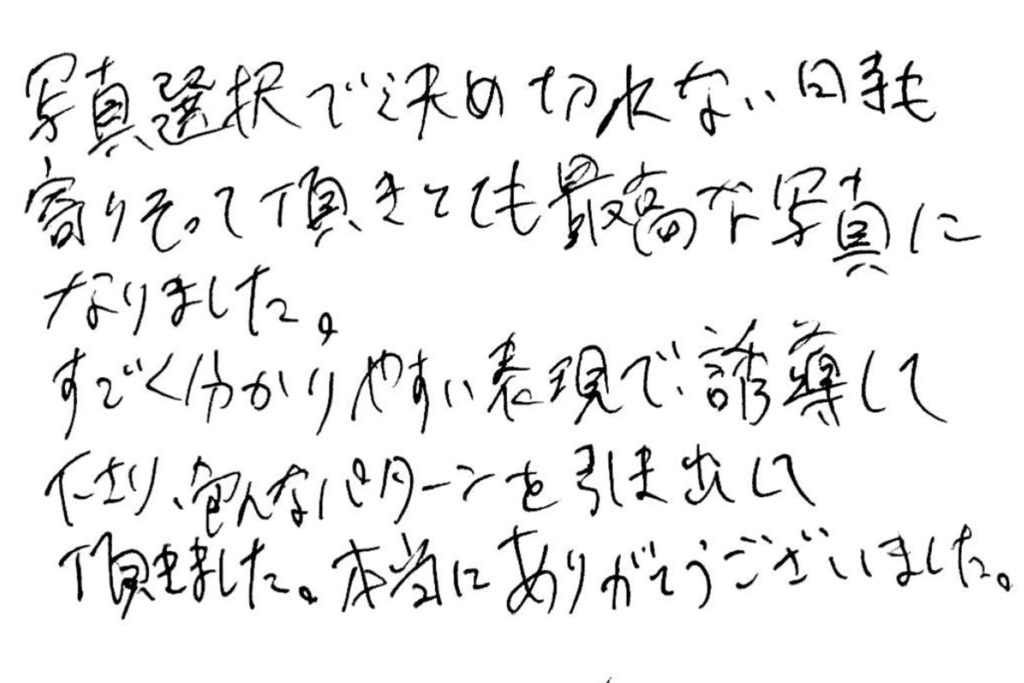 写真選択で決め切れない時も
寄りそって頂きとても最高な写真に
なりました。
すごく分かりやすい表現で誘導して
下さり、色んなパターンを引き出して
頂きました。本当にありがとうございました。